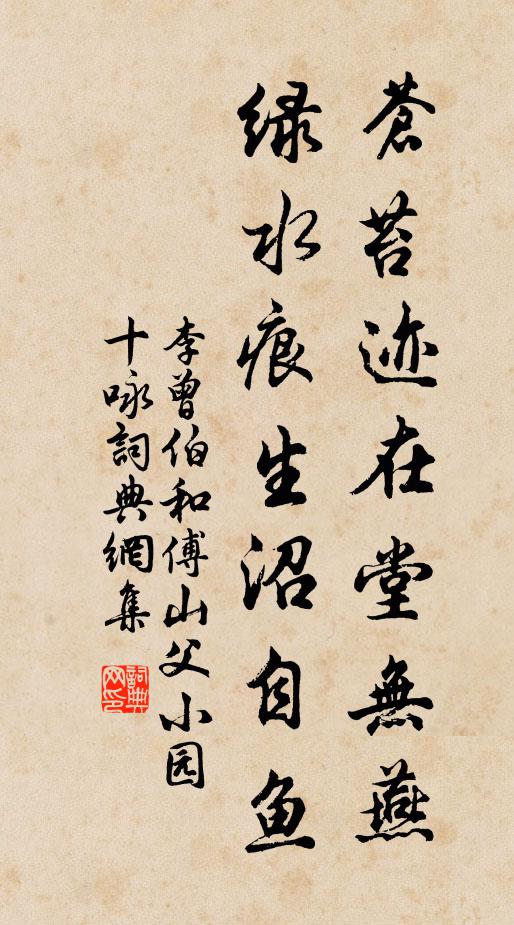 蒼苔迹在堂無燕
绿水痕生沼自魚
李曾伯和傅山父小园
十咏詞典網集
詞典网印